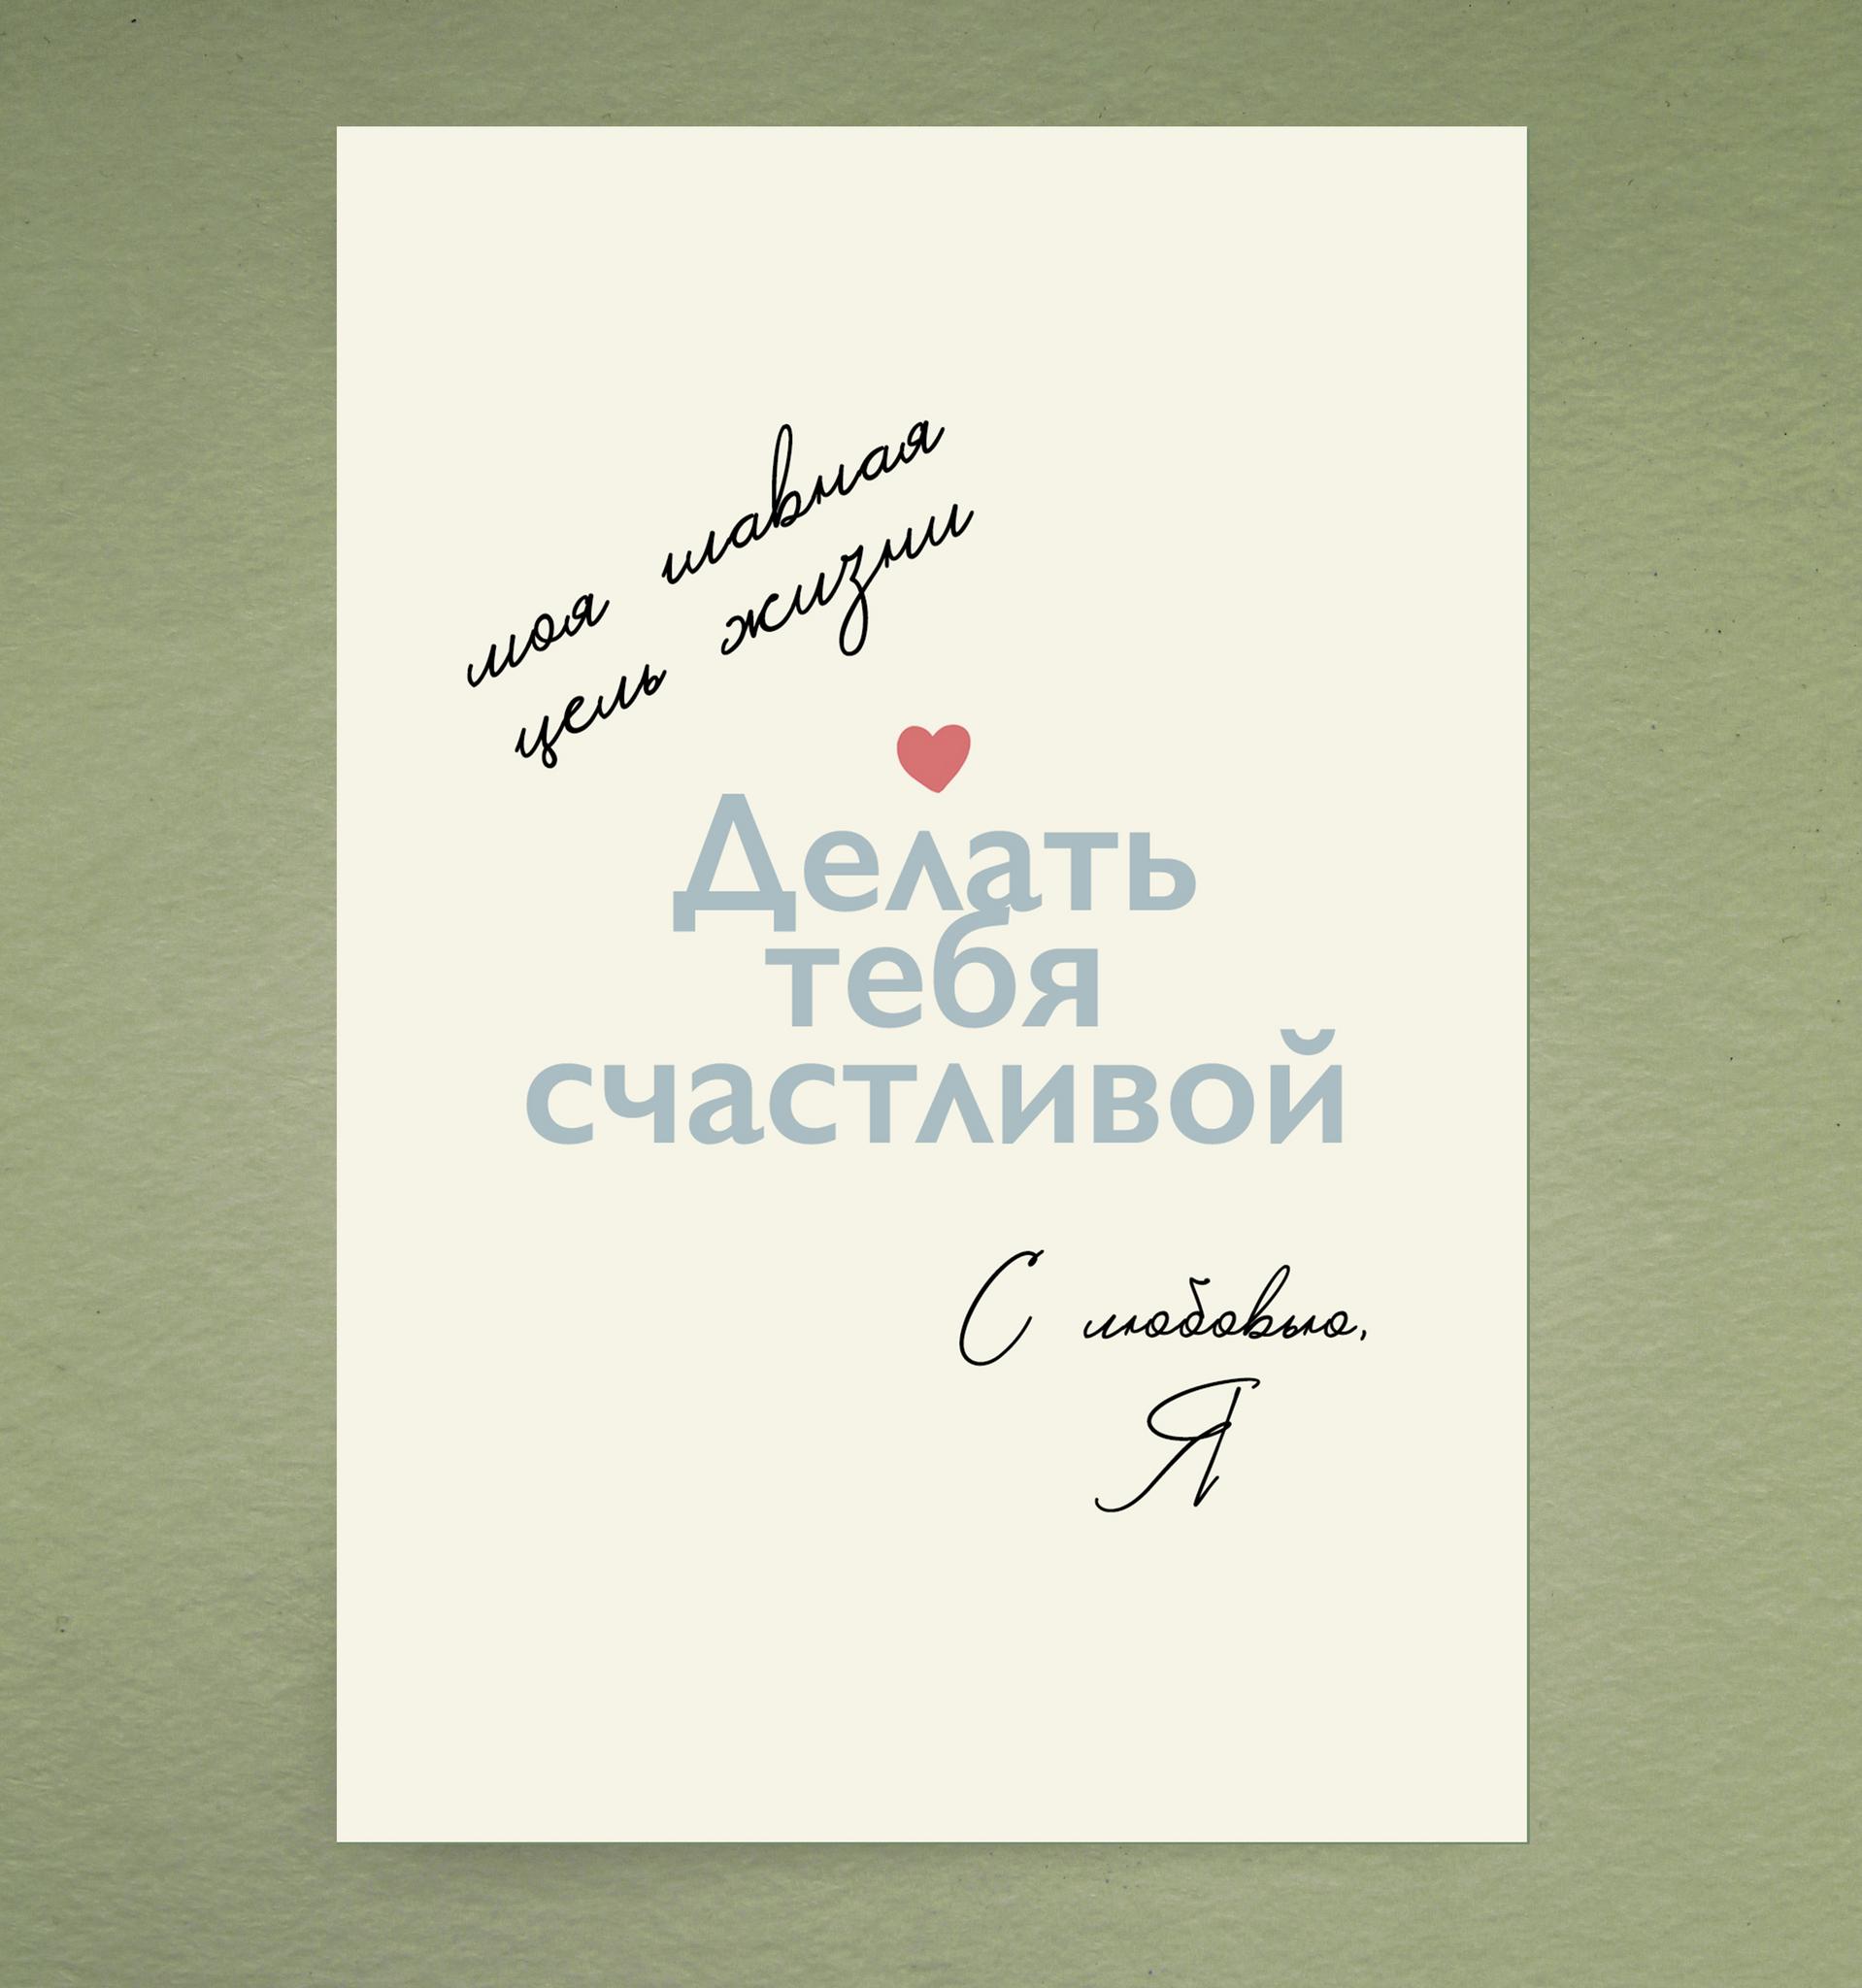 моя главная
цель жизни
Делать
тебя
счастливой
С любовью,
Я